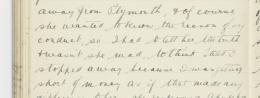 away from Plymouth, & of course
she wanted to know the reason of my
conduct, so I had to tell her the truth
& wasn't she mad, to think I had
stopped away because I was getting
short of money as if that made any